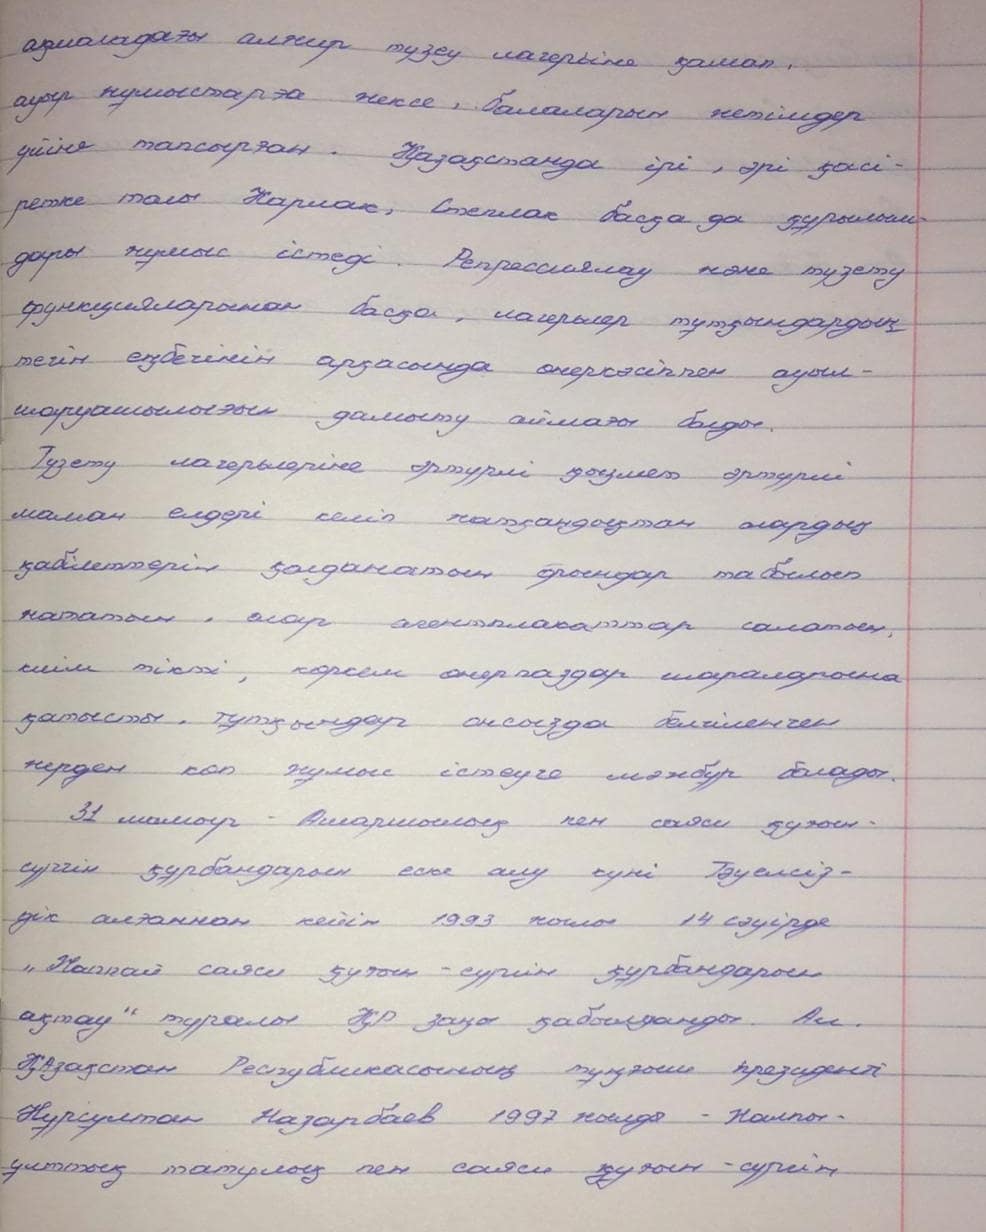 ақмоладағы алжир түзеу лагеріне қамап,
ауыр жұмыстарға жексе, балаларын жетімдер
үйіне тапсырған. Қазақстанда ірі, әрі қасі-
ретке толы Карлаг, Степлаг басқа да құрылым-
дары жұмыс істеді. Репрессиялау және түзету
функцияларынан басқа, лагерьлер тұтқындардың
тегін еңбегінің арқасында өнеркәсіппен ауыл-
шаруашылығын дамыту аймағы болды.
Түзету лагерьлеріне әртүрлі қызмет әртүрлі
маман елдері келіп жатқандықтан олардың
қабілеттерін қолданатын орындар табылып
жататын. олар агентплакаттар салатын,
киім тікті, көркем өнерпаздар шараларына
қатысты. тұтқындар онсызда белгіленген
жерден көп жұмыс істеуге мәжбүр болады.
31 мамыр - Ашаршылық пен саяси қуғын-
сүргін құрбандарын еске алу күні Тәуелсіз-
дік алғаннан кейін 1993 жылы 14 сәуірде
„Жаппай саяси қуғын-сүргін құрбандарын
ақтау“ туралы ҚР заңы қабылданды. Ал.
Қазақстан Республикасының тұңғыш президенті
Нұрсұлтан Назарбаев 1997 жылды - Жалпы-
ұлттық татулық пен саяси қуғын-сүргін